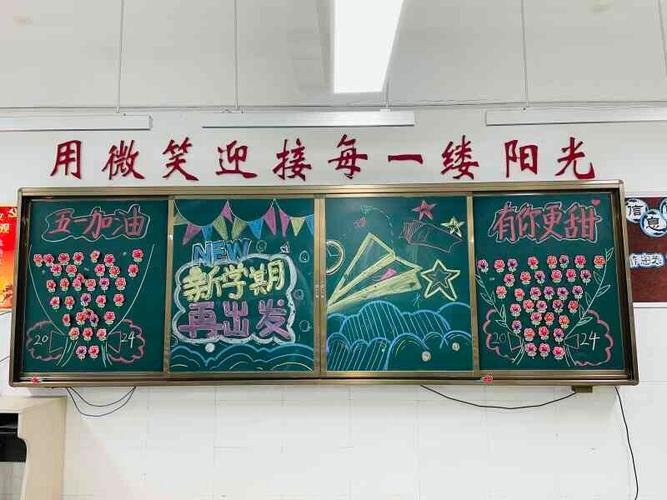 用微笑迎接每一缕阳光
五一加油
2024
NEW
新学期
再出发
有你更甜
2024
信息